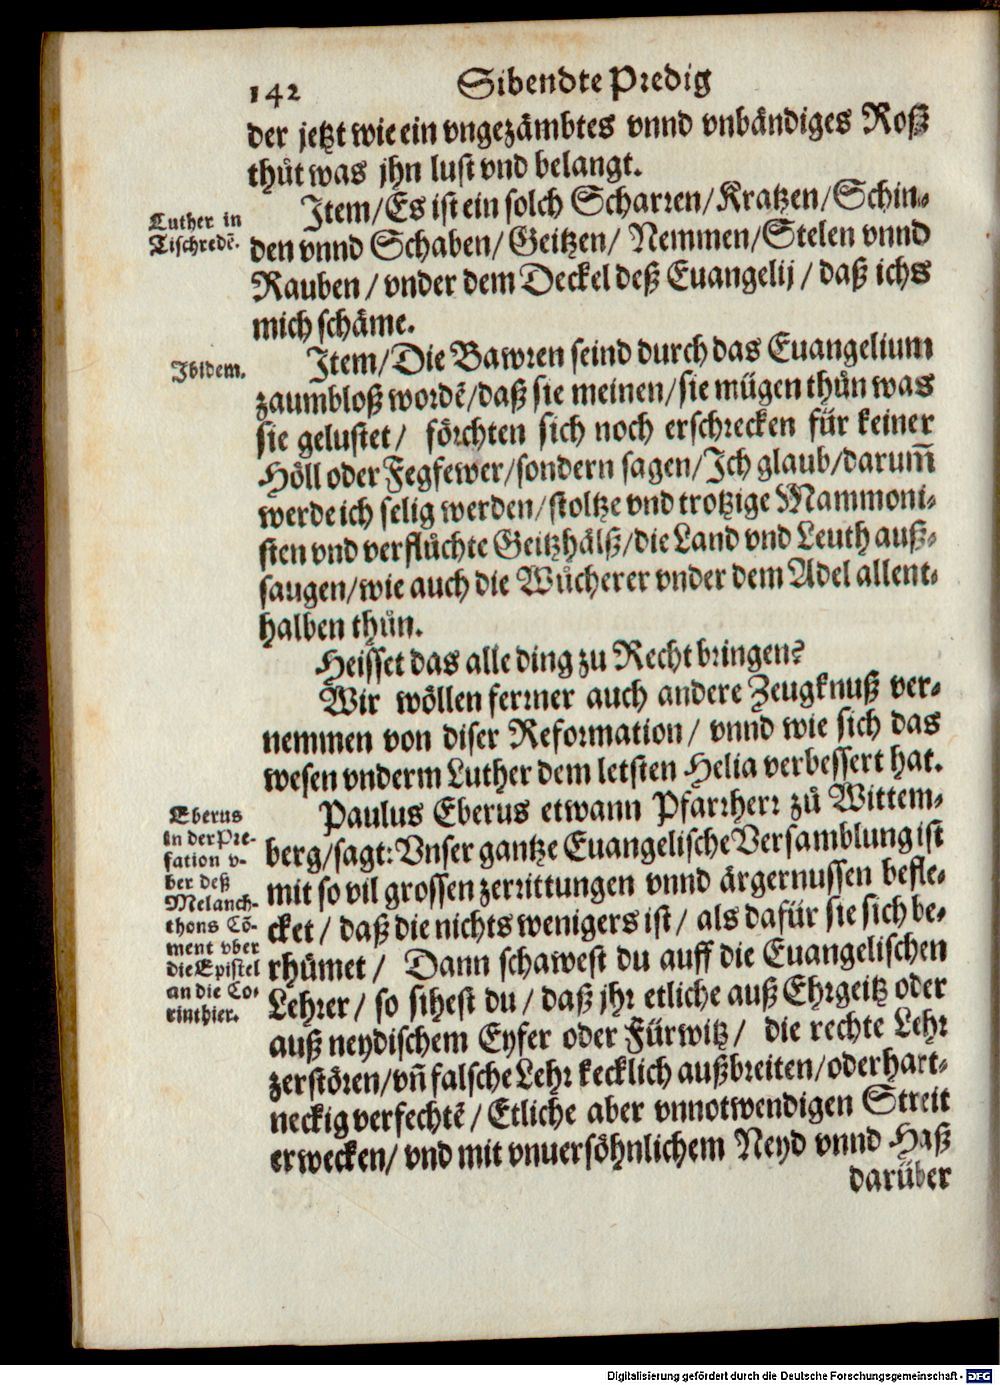 142 Sibendte Predig
der jetzt wie ein vngezämbtes vnnd vnbändiges Roß
thůt was jhn lust vnd belangt.
Luther in
Tischredẽ.
Item/Es ist ein solch Scharren/Kratzen/Schin-
den vnnd Schaben/Geitzen/ Nemmen/Stelen vnnd
Rauben / vnder dem Deckel deß Euangelij / daß ichs
mich schäme.
Ibidem.
Item/Die Bawren seind durch das Euangelium
zaumbloß wordẽ/daß sie meinen/sie mügen thůn was
sie gelustet/ förchten sich noch erschrecken für keiner
Höll oder Fegfewer/sondern sagen/Ich glaub/darum̃
werde ich selig werden/stoltze vnd trotzige Mammoni-
sten vnd verflůchte Geitzhälß/die Land vnd Leuth auß-
saugen/wie auch die Wůcherer vnder dem Adel allent-
halben thůn.
Heisset das alle ding zu Recht bringen?
Wir wöllen ferrner auch andere Zeugknuß ver-
nemmen von diser Reformation / vnnd wie sich das
wesen vnderm Luther dem letsten Helia verbessert hat.
Eberus
in der Pre-
fation v-
ber deß
Melanch-
thons Cõ-
ment vber
die Epistel
an die Co-
rinthier.
Paulus Eberus etwann Pfarrherr zů Wittem-
berg/sagt: Vnser gantze Euangelische Versamblung ist
mit so vil grossen zerrittungen vnnd ärgernussen befle-
cket / daß die nichts wenigers ist / als dafür sie sich be-
rhümet / Dann schawest du auff die Euangelischen
Lehrer / so sihest du / daß jhr etliche auß Ehrgeitz oder
auß neydischem Eyfer oder Fürwitz / die rechte Lehr
zerstören/vñ falsche Lehr kecklich außbreiten/oder hart-
neckig verfechtẽ / Etliche aber vnnotwendigen Streit
erwecken/ vnd mit vnuersöhnlichem Neyd vnnd Haß
darüber
Digitalisierung gefördert durch die Deutsche Forschungsgemeinschaft - DFG